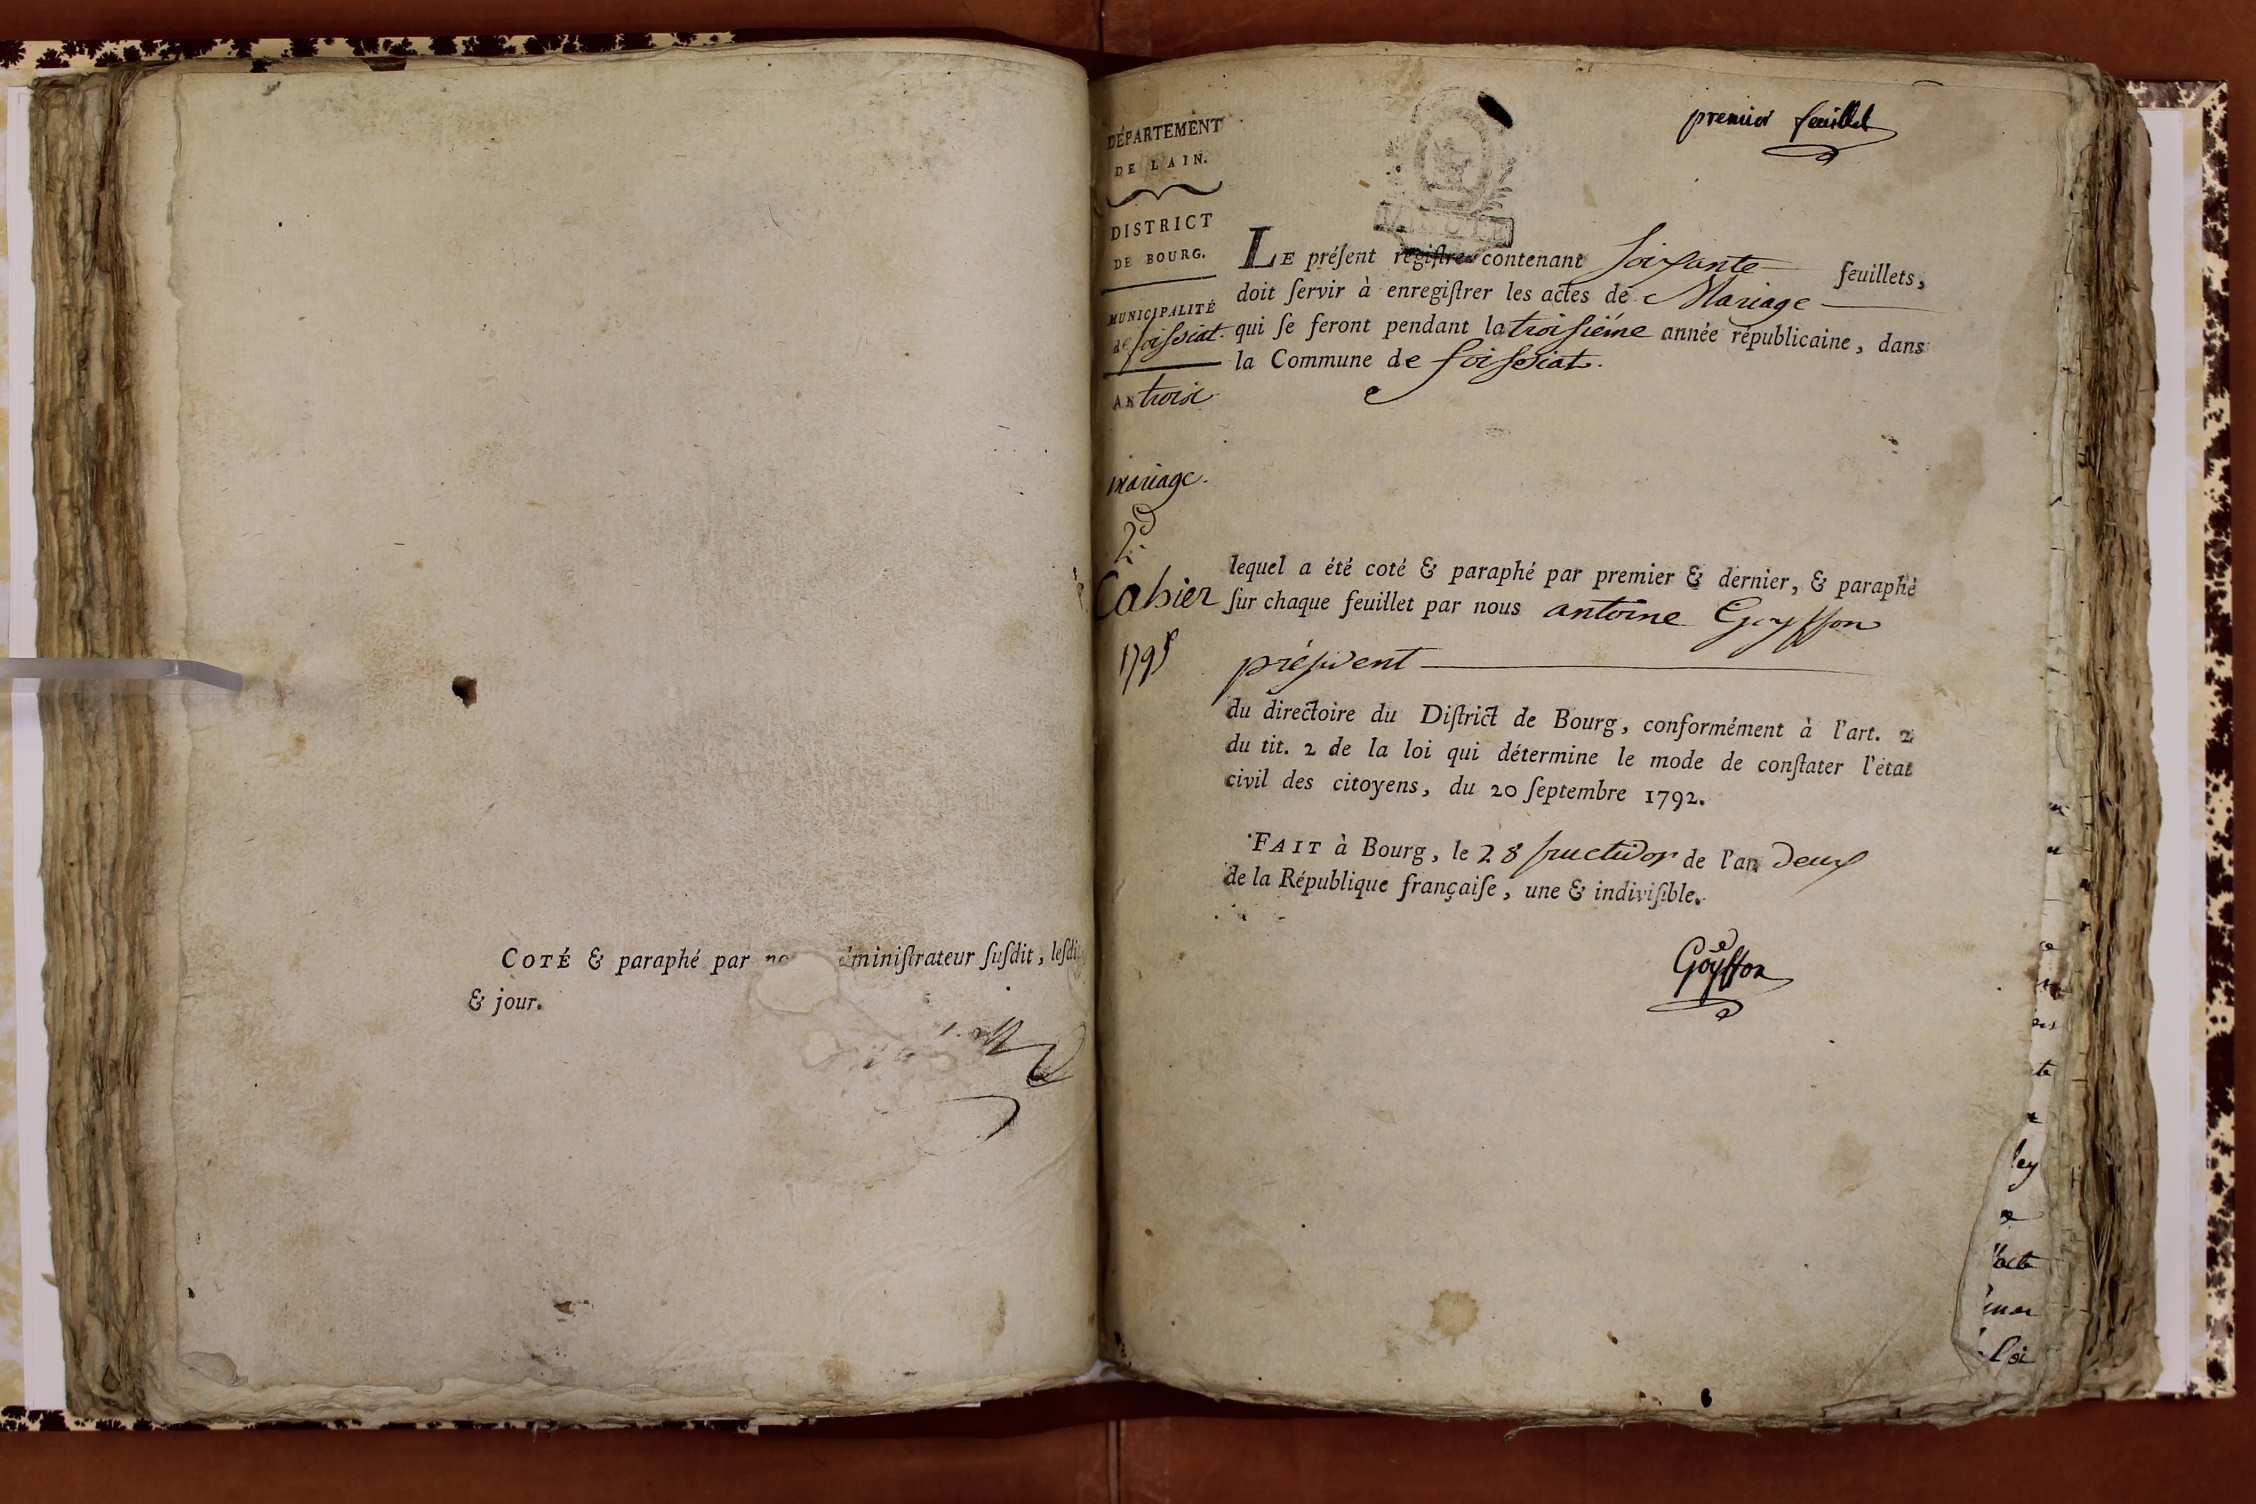 COTÉ & paraphé par administrateur ſuſdit, leſdi
& jour.
premier feuillet
DÉPARTEMENT
DE L'AIN.
DISTRICT
DE BOURG.
MUNICIPALITÉ
de foiſſiat.
AN troix
mariage.
2d
Cahier
1795
LE préſent regiſtre contenant ſoixante feuillets,
doit ſervir à enregiſtrer les actes de Mariage
qui ſe feront pendant la troiſiéme année républicaine, dans
la Commune de foiſſiat.
lequel a été coté & paraphé par premier & dernier, & paraphé
ſur chaque feuillet par nous antoine Goyffon
préſident
du directoire du Diſtrict de Bourg, conformément à l'art. 2
du tit. 2 de la loi qui détermine le mode de conſtater l'état
civil des citoyens, du 20 ſeptembre 1792.
FAIT à Bourg, le 28 fructidor de l'an deux
de la République françaiſe, une & indiviſible.
Goyffon